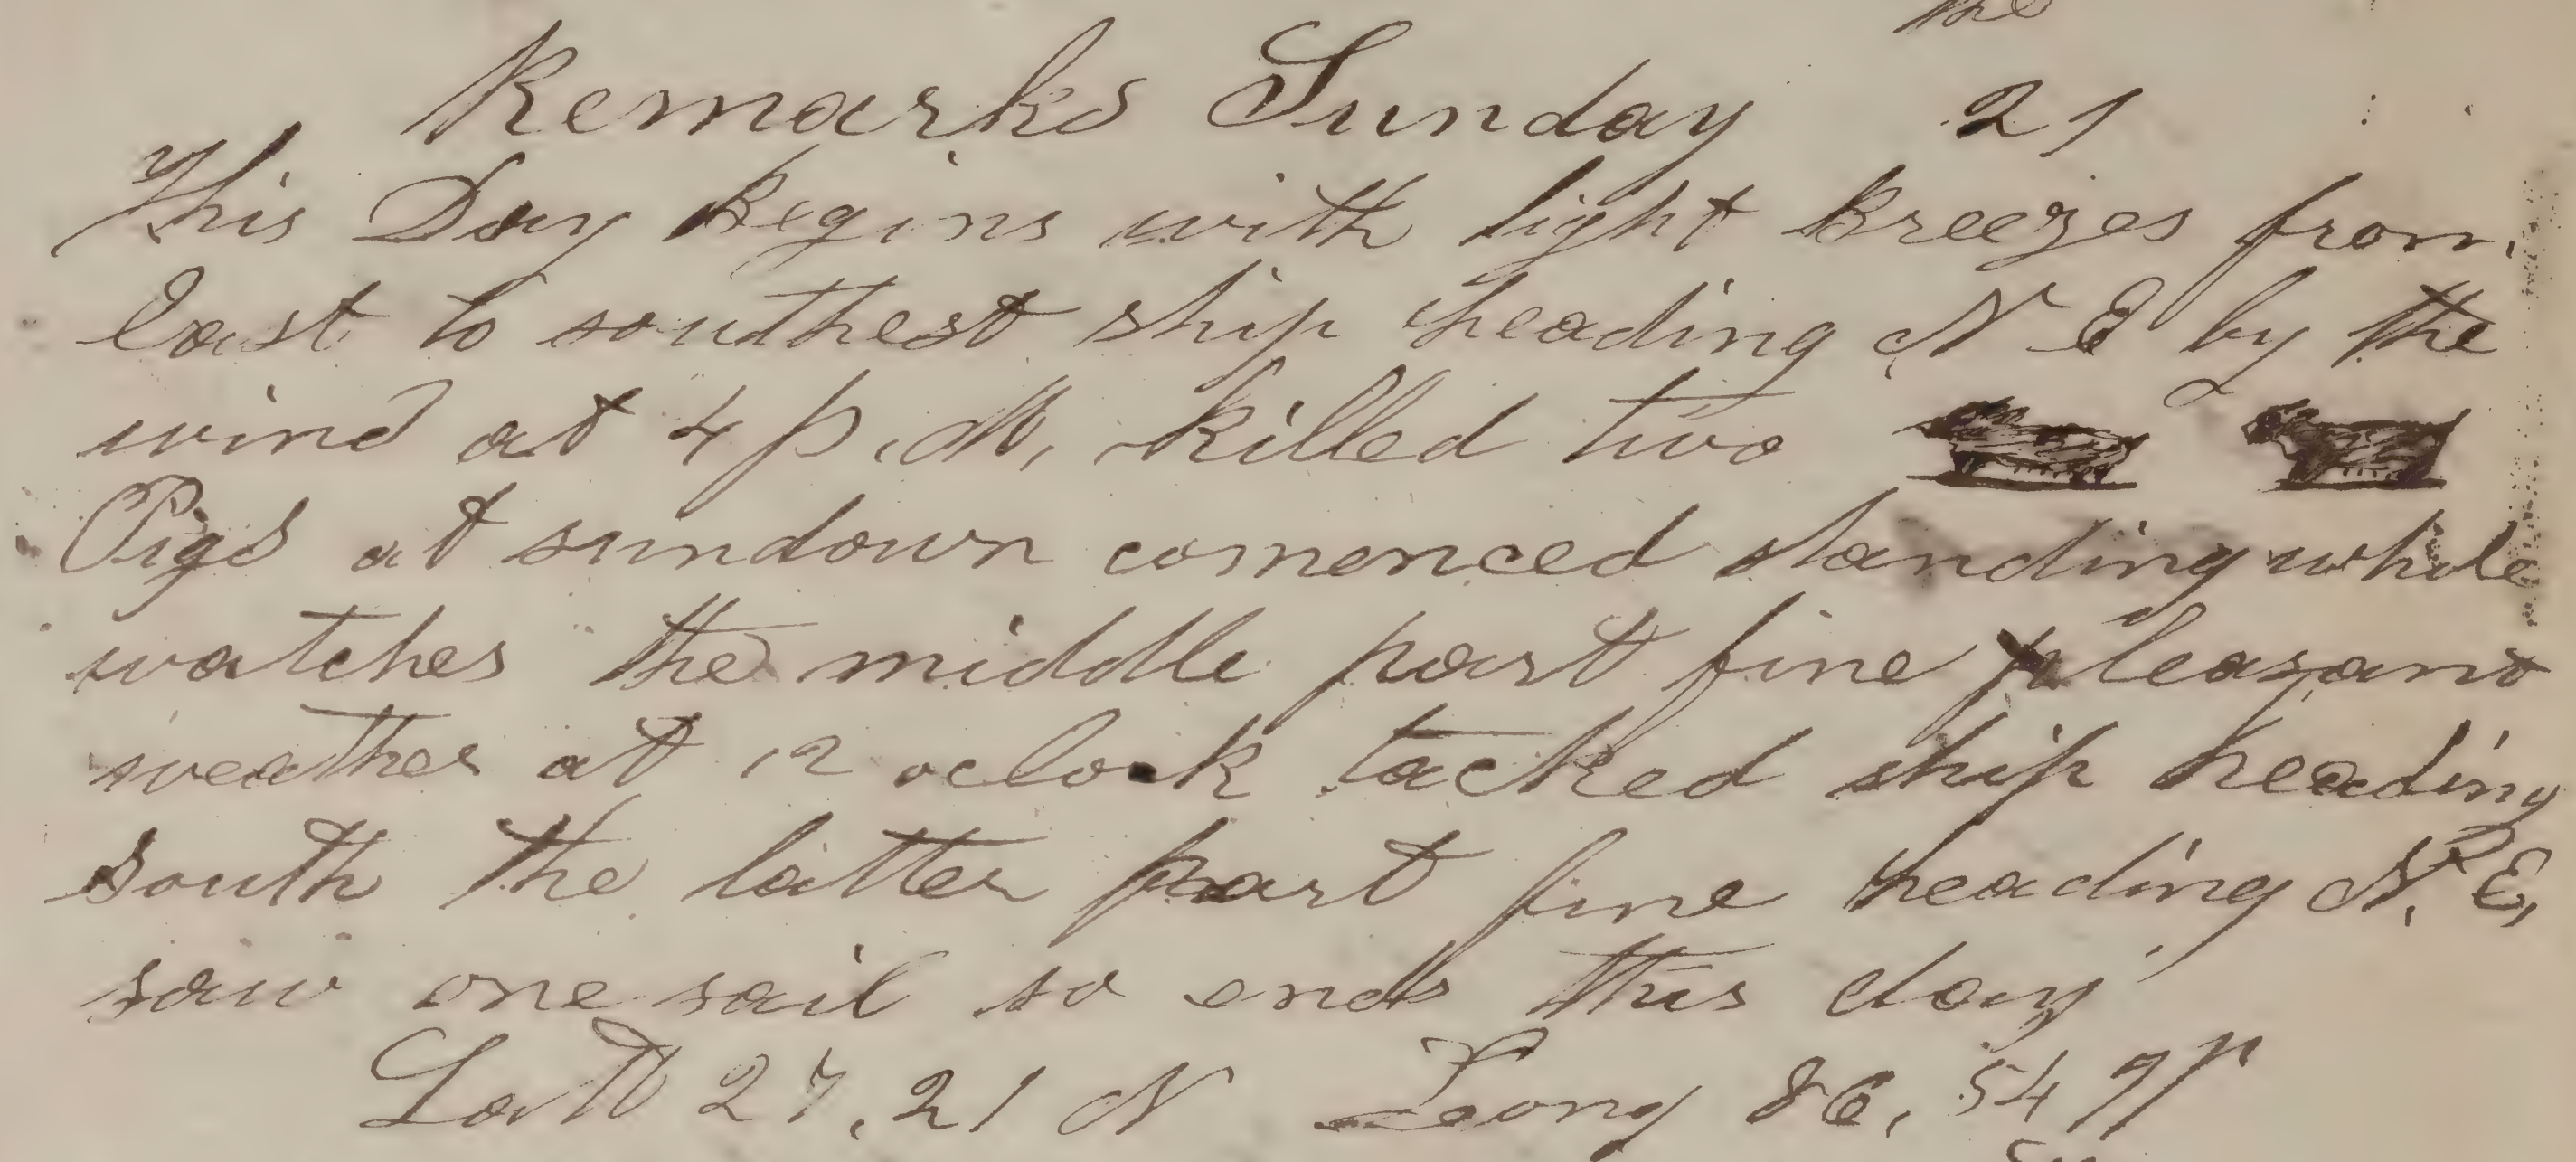 the
Remarks Sunday 21
This Day Begins with light Breezes from
East to southest ship heading N E by the
wind at 4 p. M, killed two
Pigs at sundown comenced standing whole
watches the middle part fine pleasant
weather at 12 oclock tacked ship heading
South the latter part fine heading N. E,
saw one sail so ends this day
Latt 27,21 N Long 86,54 W